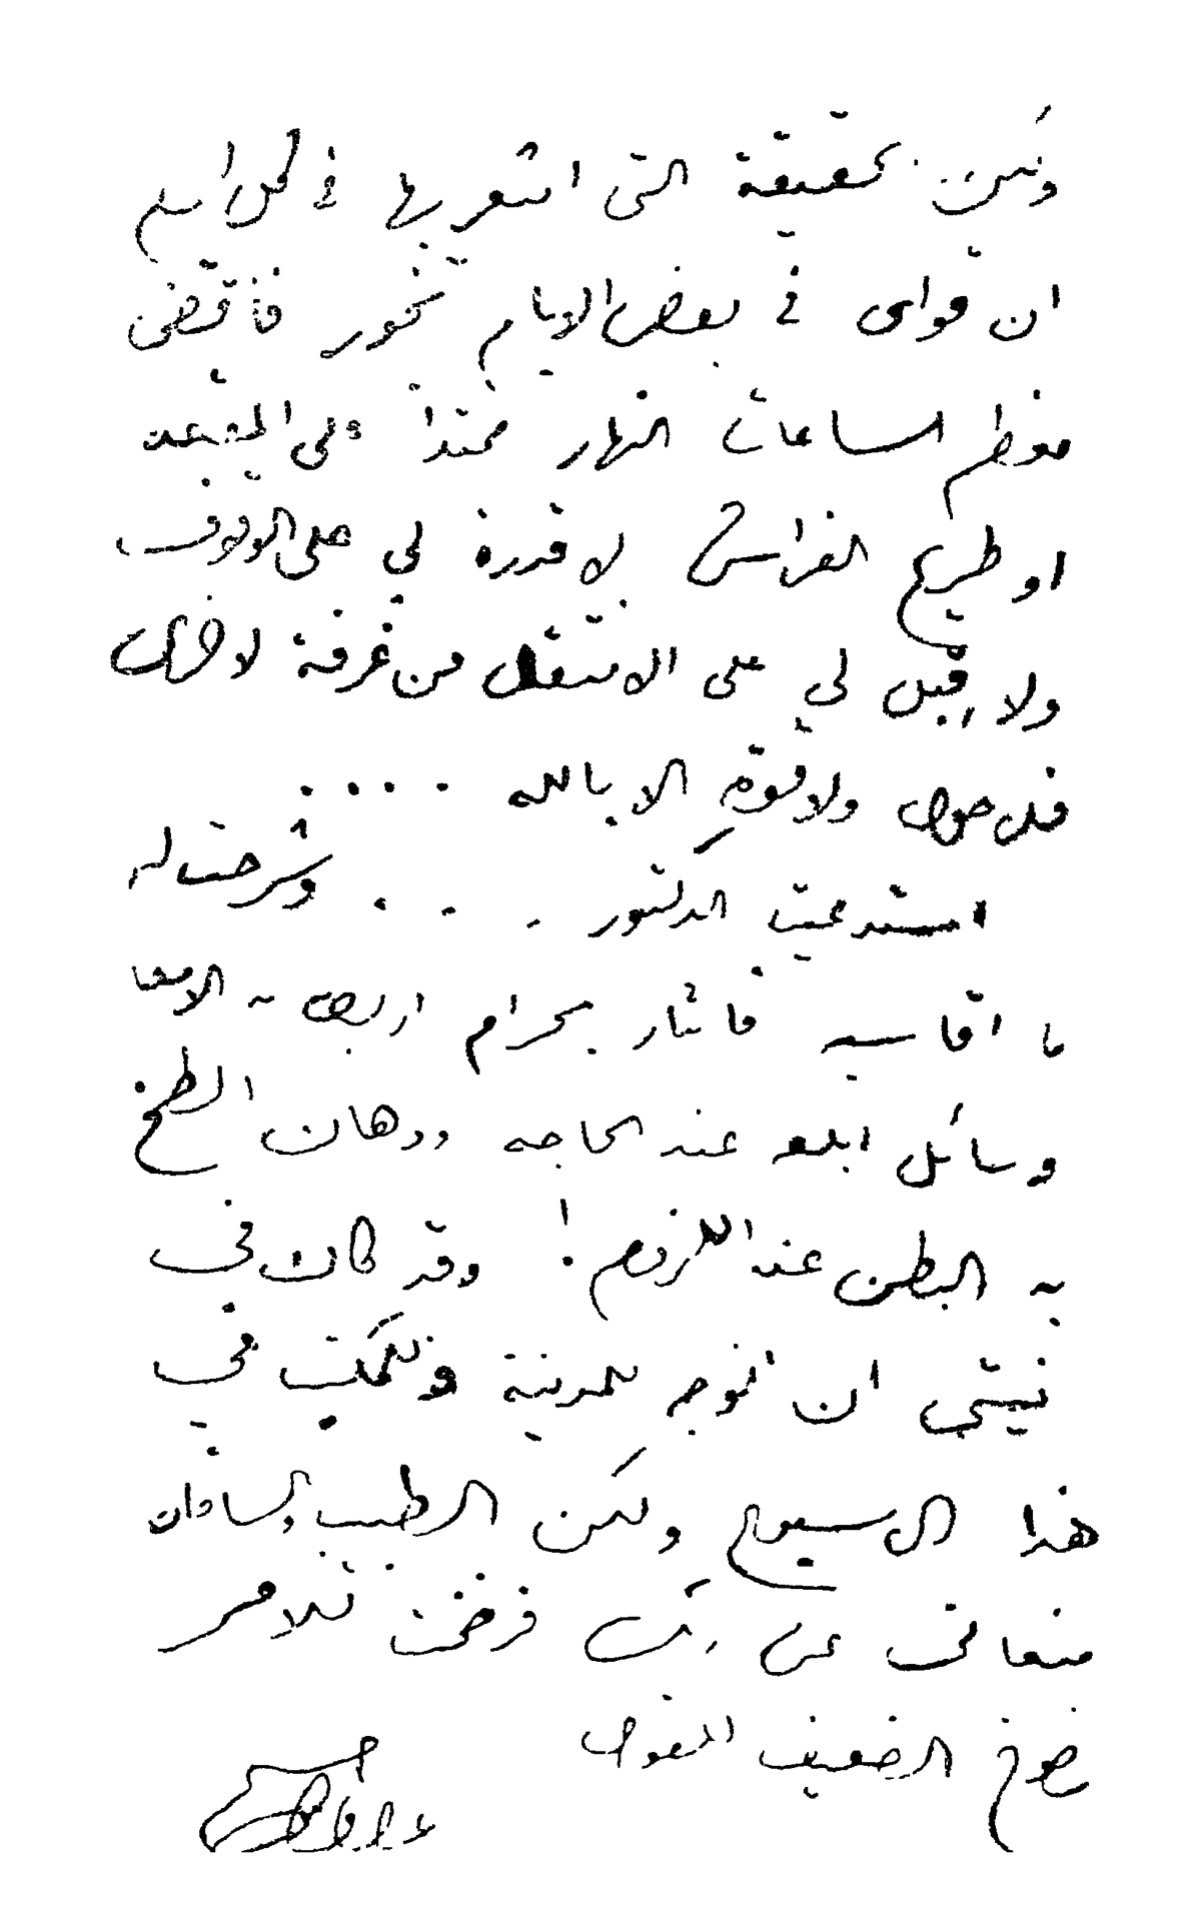 ولكن الحقيقة التي اشعر بها في كل ايام
ان قواى في بعض الايام تخور فأقضى
معظم الساعات النهار ممتداً على المقعد
او طريح الفراش لا قدرة لي على الوقوف
ولا قبل لي على الانتقال من غرفة لاخرى
فلا حول ولا قوة الا بالله ....
استدعيت الدكتور . . . وشرحت له
ما اقاسيه فأشار بحرام اربط به الامعا
وسائل ابلعه عند الحاجه ودهان الطخ
به البطن عند اللزوم! وقد كان في
نيتي ان اتوجه للمدينة وللمكتب في
هذا الاسبوع ولكن الطبيب والسادات
منعاني عن ذلك فرضخت للامر
رضوخ الضعيف